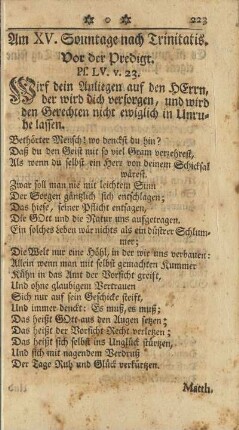 223
Am XV. Sonntage nach Trinitatis.
Vor der Predigt.
Ps. LV. v. 23.
Wirf dein Anliegen auf den HErrn,
der wird dich versorgen, und wird
den Gerechten nicht ewiglich in Unru-
he lassen.
Bethörter Mensch! wo denckst du hin?
Daß du den Geist mit so viel Gram verzehrest,
Als wenn du selbst ein Herr von deinem Schicksal
wärest.
Zwar soll man nie mit leichtem Sinn
Der Sorgen gäntzlich sich entschlagen;
Das hiesse, seiner Pflicht entsagen,
Die GOtt und die Natur uns aufgetragen.
Ein solches Leben wär nichts als ein düstrer Schlum-
mer;
Die Welt nur eine Höhl, in der wir uns verbauten:
Allein wenn man mit selbst gemachten Kummer
Kühn in das Amt der Vorsicht greift,
Und ohne glaubigem Vertrauen
Sich nur auf sein Geschicke steift,
Und immer denckt: Es muß, es muß;
Das heißt GOtt aus den Augen setzen;
Das heißt der Vorsicht Recht verletzen;
Das heißt sich selbst ins Unglück stürtzen,
Und sich mit nagendem Verdruß
Der Tage Ruh und Glück verkürtzen.
Matth.